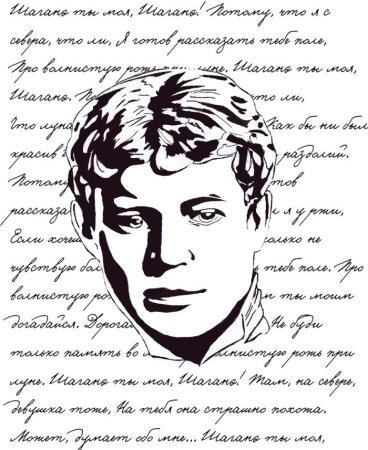 Шаганэ ты моя, Шаганэ! Потому, что я с
севера, что ли, Я готов рассказать тебе поле,
Про волнистую рожь при луне, Шаганэ ты моя,
Шаганэ, то ли,
Что луна Как бы ни был
красив раздолий.
Потому
рассказа и я у ржи,
Если хочешь только не
чувствую бол тебе поле. Про
волнистую рожь ты моим
догадайся. Дорога Не буди
только память во волнистую рожь при
луне. Шаганэ ты моя, Шаганэ! Там, на севере,
девушка тоже, На тебя она страшно похожа.
Может, думает обо мне... Шаганэ ты моя,